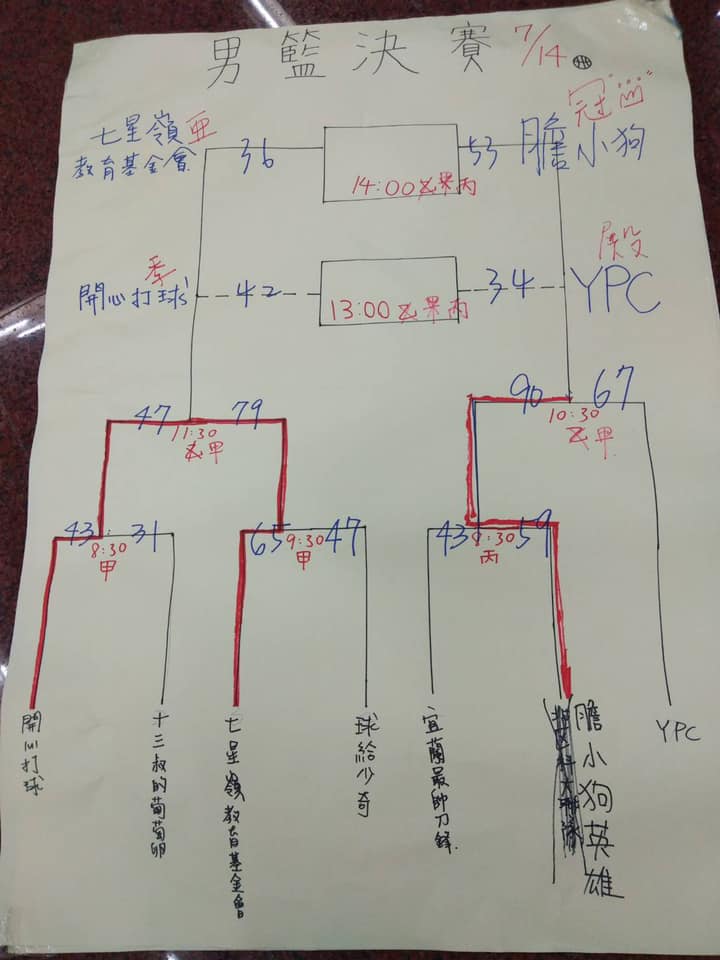 男籃決賽 7/14
冠
七星嶺 亜
教育基金會
36
53
膽小狗
14:00
殿
季
開心打球
42
34
YPC
13:00
47
79
11:30
甲
90
67
10:30
甲
43
31
8:30
甲
65
47
9:30
甲
43
59
8:30
丙
開心打球
十三叔的葡萄卵
七星嶺教育基金會
球給少奇
宜蘭最帥刀鋒
膽小狗英雄
YPC